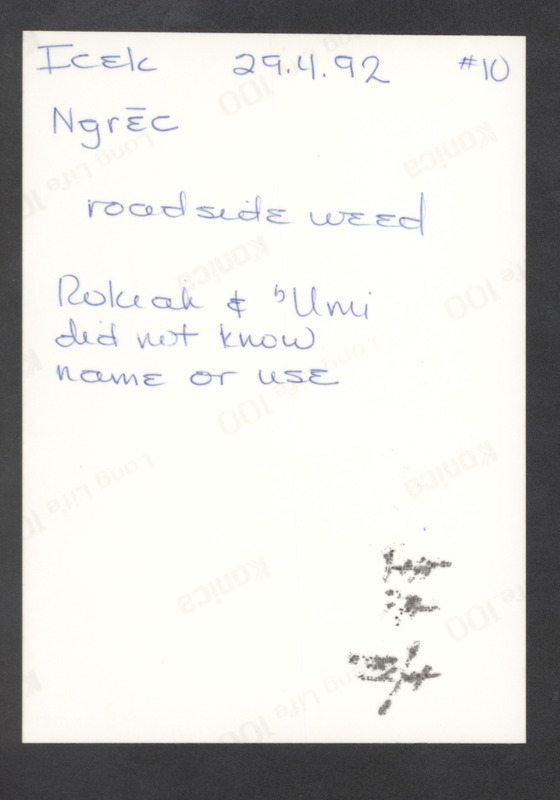 Icek 29.4.92 #10
Ngrēc
roadside weed
Rokiah & ᵇUmi
did not know
name or use
Konica
Long Life 100